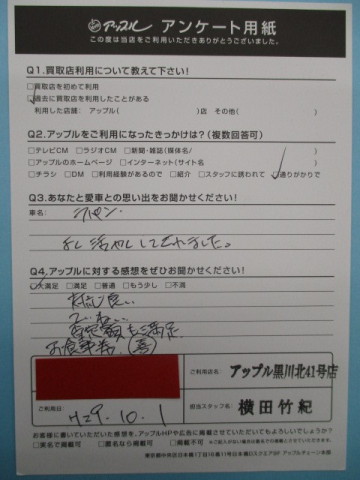 アップル アンケート用紙
この度は当店をご利用いただきありがとうございました。
Q1.買取店利用について教えて下さい!
□買取店を初めて利用
□過去に買取店を利用したことがある
利用した店舗: アップル( )店 その他( )
Q2.アップルをご利用になったきっかけは?(複数回答可)
□テレビCM □ラジオCM □新聞・雑誌(媒体名/ )
□アップルのホームページ □インターネット(サイト名 )
□チラシ □DM □利用経験があるので □紹介 □スタッフに誘われて □通りがかりで
Q3.あなたと愛車との思い出をお聞かせください!
車名:
ラパン
活やくしてくれました。
Q4.アップルに対する感想をぜひお聞かせください!
□大満足 □満足 □普通 □もう少し □不満
対応良い
ていねい
査定額も満足
お食事券(喜)
ご利用店名: アップル黒川北41号店
ご利用日: H29.10.1
担当スタッフ名: 横田竹紀
お客様に書いていただいた感想を、アップルHPや広告に掲載させていただいてもよろしいでしょうか?
□実名で掲載可 □匿名なら掲載可 □掲載不可